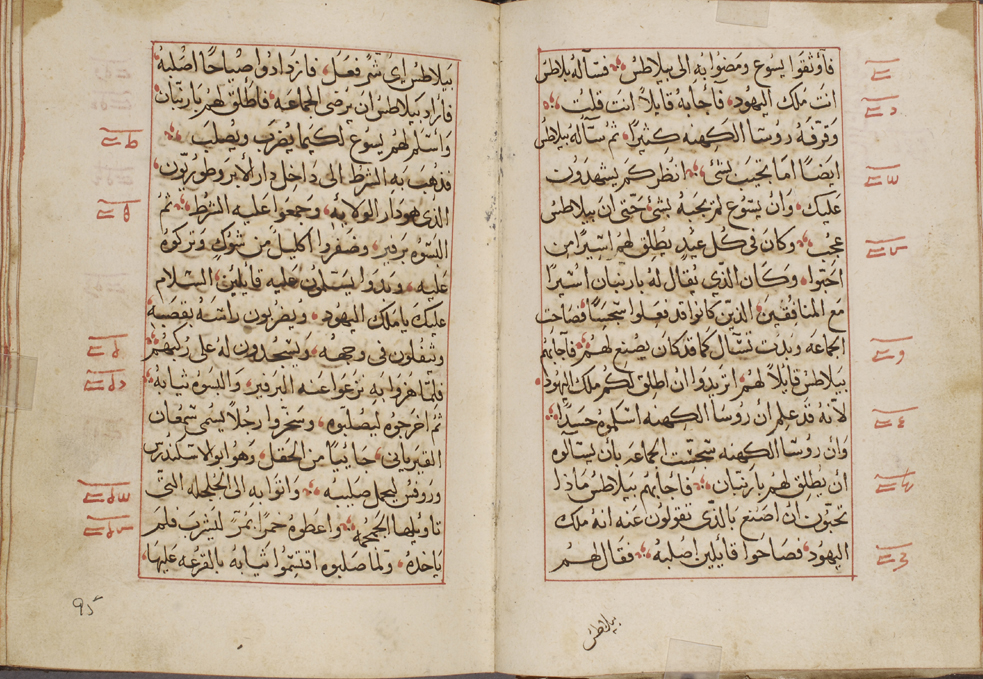 فاوثقوا يسوع ومضوا به الى بيلاطس فسآله بلاطس
انت ملك اليهود فاجابه قايلاً انت قلت
وقرفه روسا الكهنه كثيرًا ثم ساله بيلاطس
ايضًا اما تجيب بشئ انظر كم يشهدون
عليك وان يسوع لم يجبه بشئ حتى ان بيلاطس
عجب وكان في كل عيد يطلق لهم اسيرًا من
احبوا وكان الذي يقال له بارنبان اسيرًا
مع المنافقين الذين كانوا قد فعلوا سجسًا فصاحت
الجماعه وبدت تسآل كما قد كان يصنع لهم فاجابهم
بيلاطس قايلاً لهم اتريدوا ان اطلق لكم ملك اليهود
لانه قد علم ان روسا الكهنه اسلموه حسدًا
وان روسا الكهنه سجست الجماعه بان يسالوه
ان يطلق لهم بارنبان فاجابهم بيلاطس ماذا
تحبون ان اصنع بالذي تقولون عنه انه ملك
اليهود فصاحوا قايلين اصلبه فقال لهم
بيلاطس
بيلاطس اي شر فعل فازدادوا صياحًا اصلبه
فاراد بيلاطس ان يرضى الجماعه فاطلق لهم بارنبان
واسلم لهم يسوع لكيما يضرب ويصلب
فذهب به الشرط الى داخل دار الابروطوريون
الذي هو دار الولايه وجمعوا عليه الشرط ثم
البسوه برفير وضفروا اكليلاً من شوك وتركوه
عليه وبدوا يسلمون عليه قايلين السلام
عليك يا ملك اليهود ويضربون راسه بقصبه
ويتفلون في وجهه ويسجدون له على ركبهم
فلما هزوا به نزعوا عنه البرفير والبسوه ثيابه
ثم اخرجوه ليصلبوه وسخروا رجلاً يسمى سمعان
القيرياني جائيًا من الحقل وهو ابو الاسكندرس
وروفس ليحمل صليبه واتوا به الى الجلجله التي
تاويلها الجمجمه واعطوه خمرًا بمر ليشرب فلم
ياخذه ولما صلبوه اقتسموا ثيابه بالقرعه عليها
95